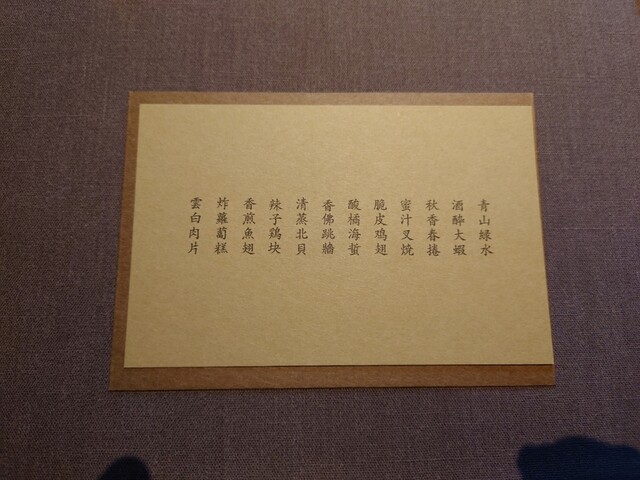 青山緑水
酒醉大蝦
秋香春捲
蜜汁叉燒
脆皮鸡翅
酸橘海蜇
香佛跳牆
清蒸北貝
辣子鶏块
香煎魚翅
炸蘿蔔糕
雲白肉片